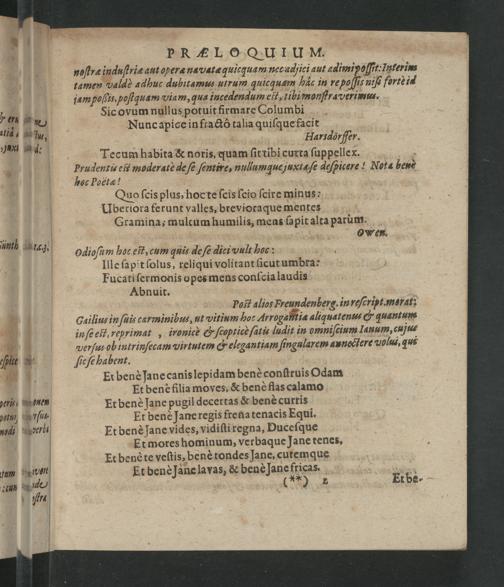 PRÆLOQUIUM.
nostræ industriæ aut operæ navatæ quicquam nec adjici aut adimi possit: Interim
tamen valdè adhuc dubitamus utrum quicquam hâc in re possis nisi fortè id
jam possis, postquam viam, qua incedendum est, tibi monstraverimus.
Sic ovum nullus potuit firmare Columbi
Nunc apice infractô talia quisque facit
Harsdörffer.
Tecum habita & noris, quam sit tibi curta suppellex.
Prudentis est moderatè de se sentire, nullumque juxta se despicere! Nota benè
hoc Poëta!
Quo scis plus, hoc te scis scio scire minus:
Uberiora ferunt valles, brevioraque mentes
Gramina; multcum humilis, mens sapit alta parùm.
Owen.
Odiosum hoc est, cum quis de se dici vult hoc:
Ille sapit solus, reliqui volitant sicut umbra:
Fucati sermonis opes mens conscia laudis
Abnuit.
Post alios Freundenberg. in rescript. morat;
Gailius in suis carminibus, ut vitium hoc Arrogantiæ aliquatenus & quantum
in se est, reprimat, ironicè & scopticè satis ludit in omniscium Ianum, cujus
versus ob intrinsecam virtutem & elegantiam singularem annectere volui, qui
sic se habent.
Et benè Jane canis lepidam benè construis Odam
Et benè filia moves, & benè flas calamo
Et benè Jane pugil decertas & benè curris
Et benè Jane regis frena tenacis Equi.
Et benè Jane vides, vidisti regna, Ducesque
Et mores hominum, verbaque Jane tenes,
Et benè te vestis, benè tondes Jane, cutemque
Et benè Jane lavas, & benè Jane fricas.
(**) 2 Et be-